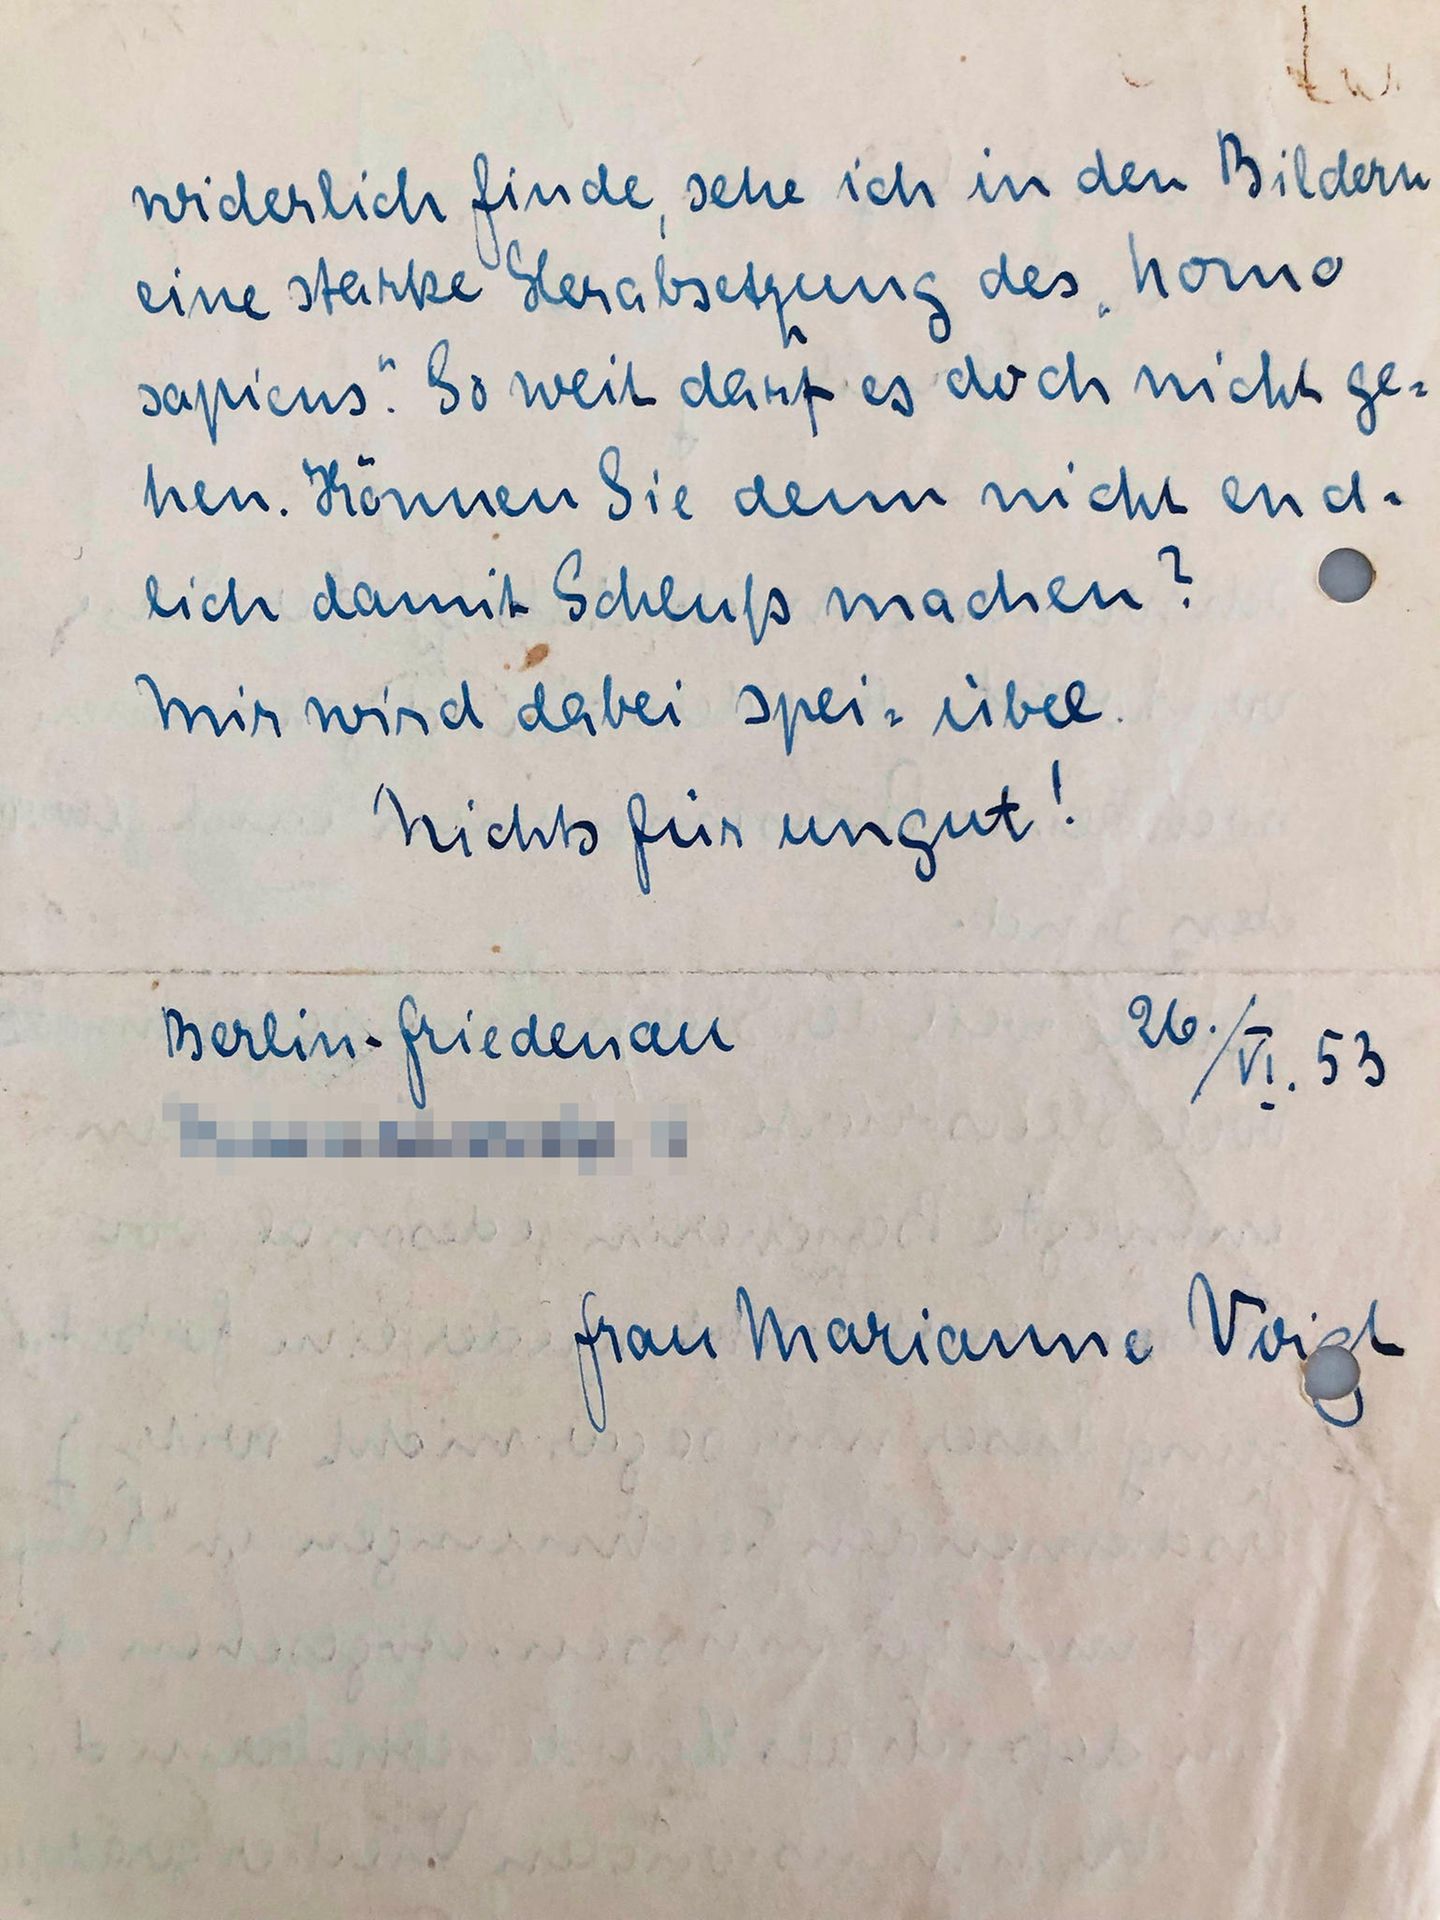 widerlich finde, sehe ich in den Bildern
eine starke Herabsetzung des „homo
sapiens“. So weit darf es doch nicht ge-
hen. Können Sie denn nicht end-
lich damit Schluß machen?
Mir wird dabei spei-übel.
Nichts für ungut!
Berlin-Friedenau 26./VI. 53
Frau Marianne Voigt